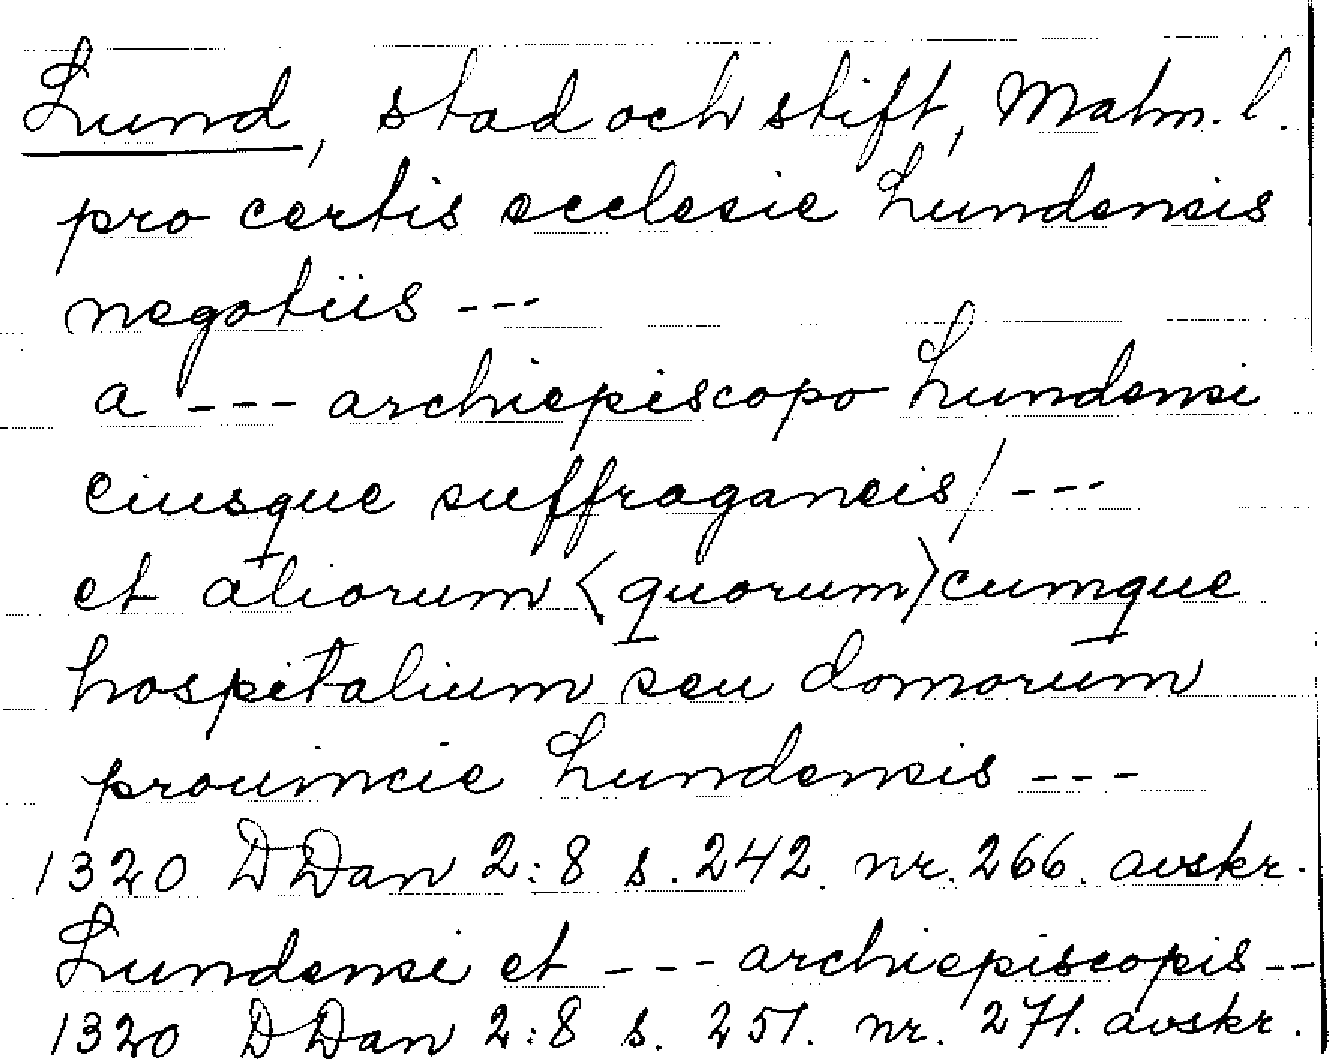 Lund, stad och stift, Malm. l.
pro certis ecclesie Lundensis
negotiis ---
a --- archiepiscopo Lundensi
eiusque suffraganeis/ ---
et aliorum <quorum>cumque
hospitalium seu domorum
prouincie Lundensis ---
1320 DDan 2:8 s. 242. nr. 266. avskr.
Lundensi et --- archiepiscopis --
1320 DDan 2:8 s. 251. nr. 271. avskr.